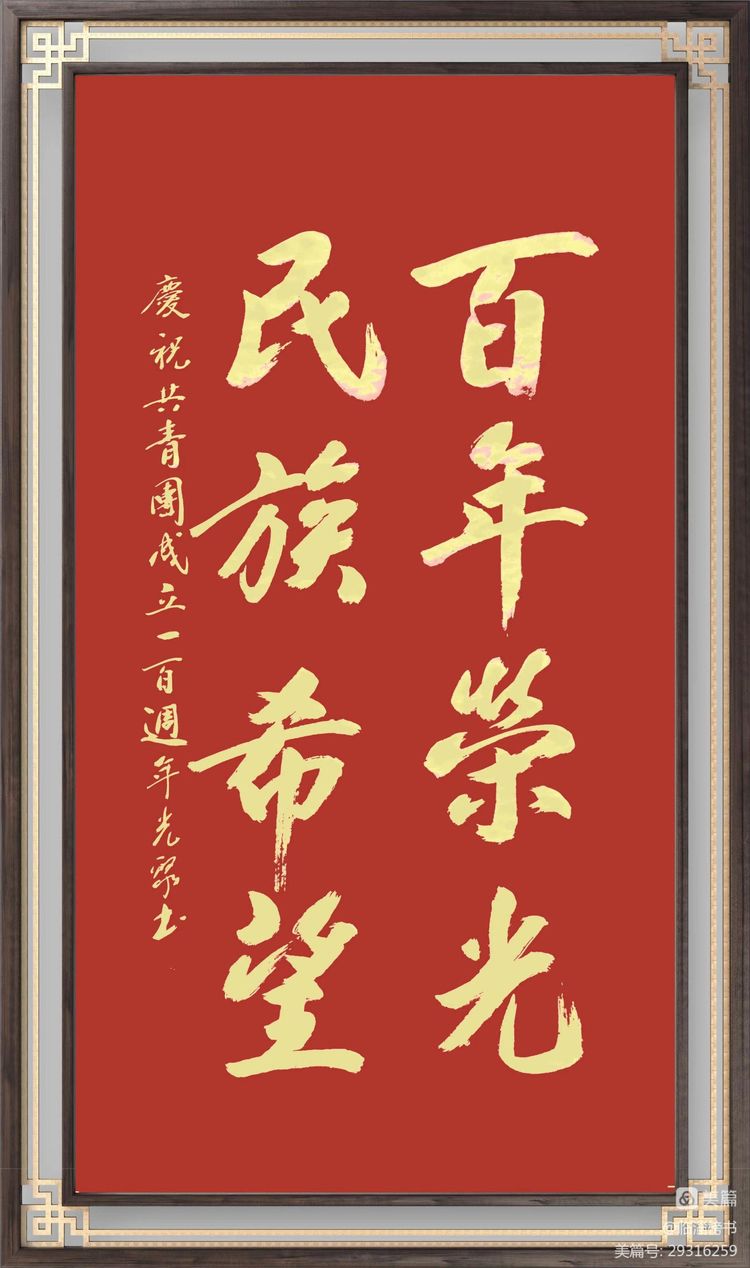 百年榮光
民族希望
慶祝共青團成立一百週年光眾书
美篇
@临泽榜书
美篇号: 29316259